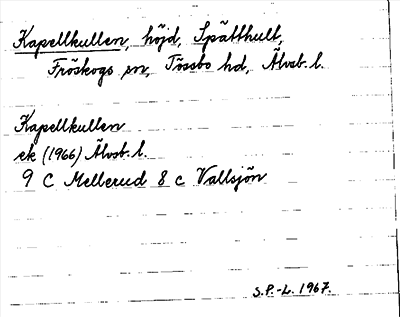 Kapellkullen, höjd, Spätthult,
Fröskogs sn, Tössbo hd, Älvsb. l.
Kapellkullen
ek (1966) Älvsb. l.
9 C Mellerud 8 c Vallsjön
S.P.-L. 1967.